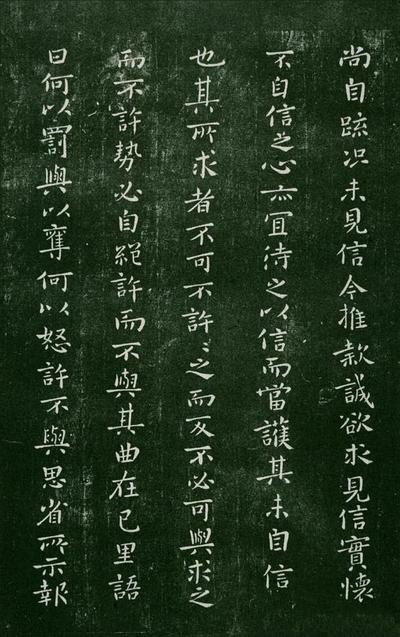 尚自疏况未見信今推款誠欲求見信實懷
不自信之心亦宜待之以信而當護其未自信
也其所求者不可不許〻之而反不必可與求之
而不許勢必自絕許而不與其曲在己里語
曰何以罰與以奪何以怒許不與思省所示報